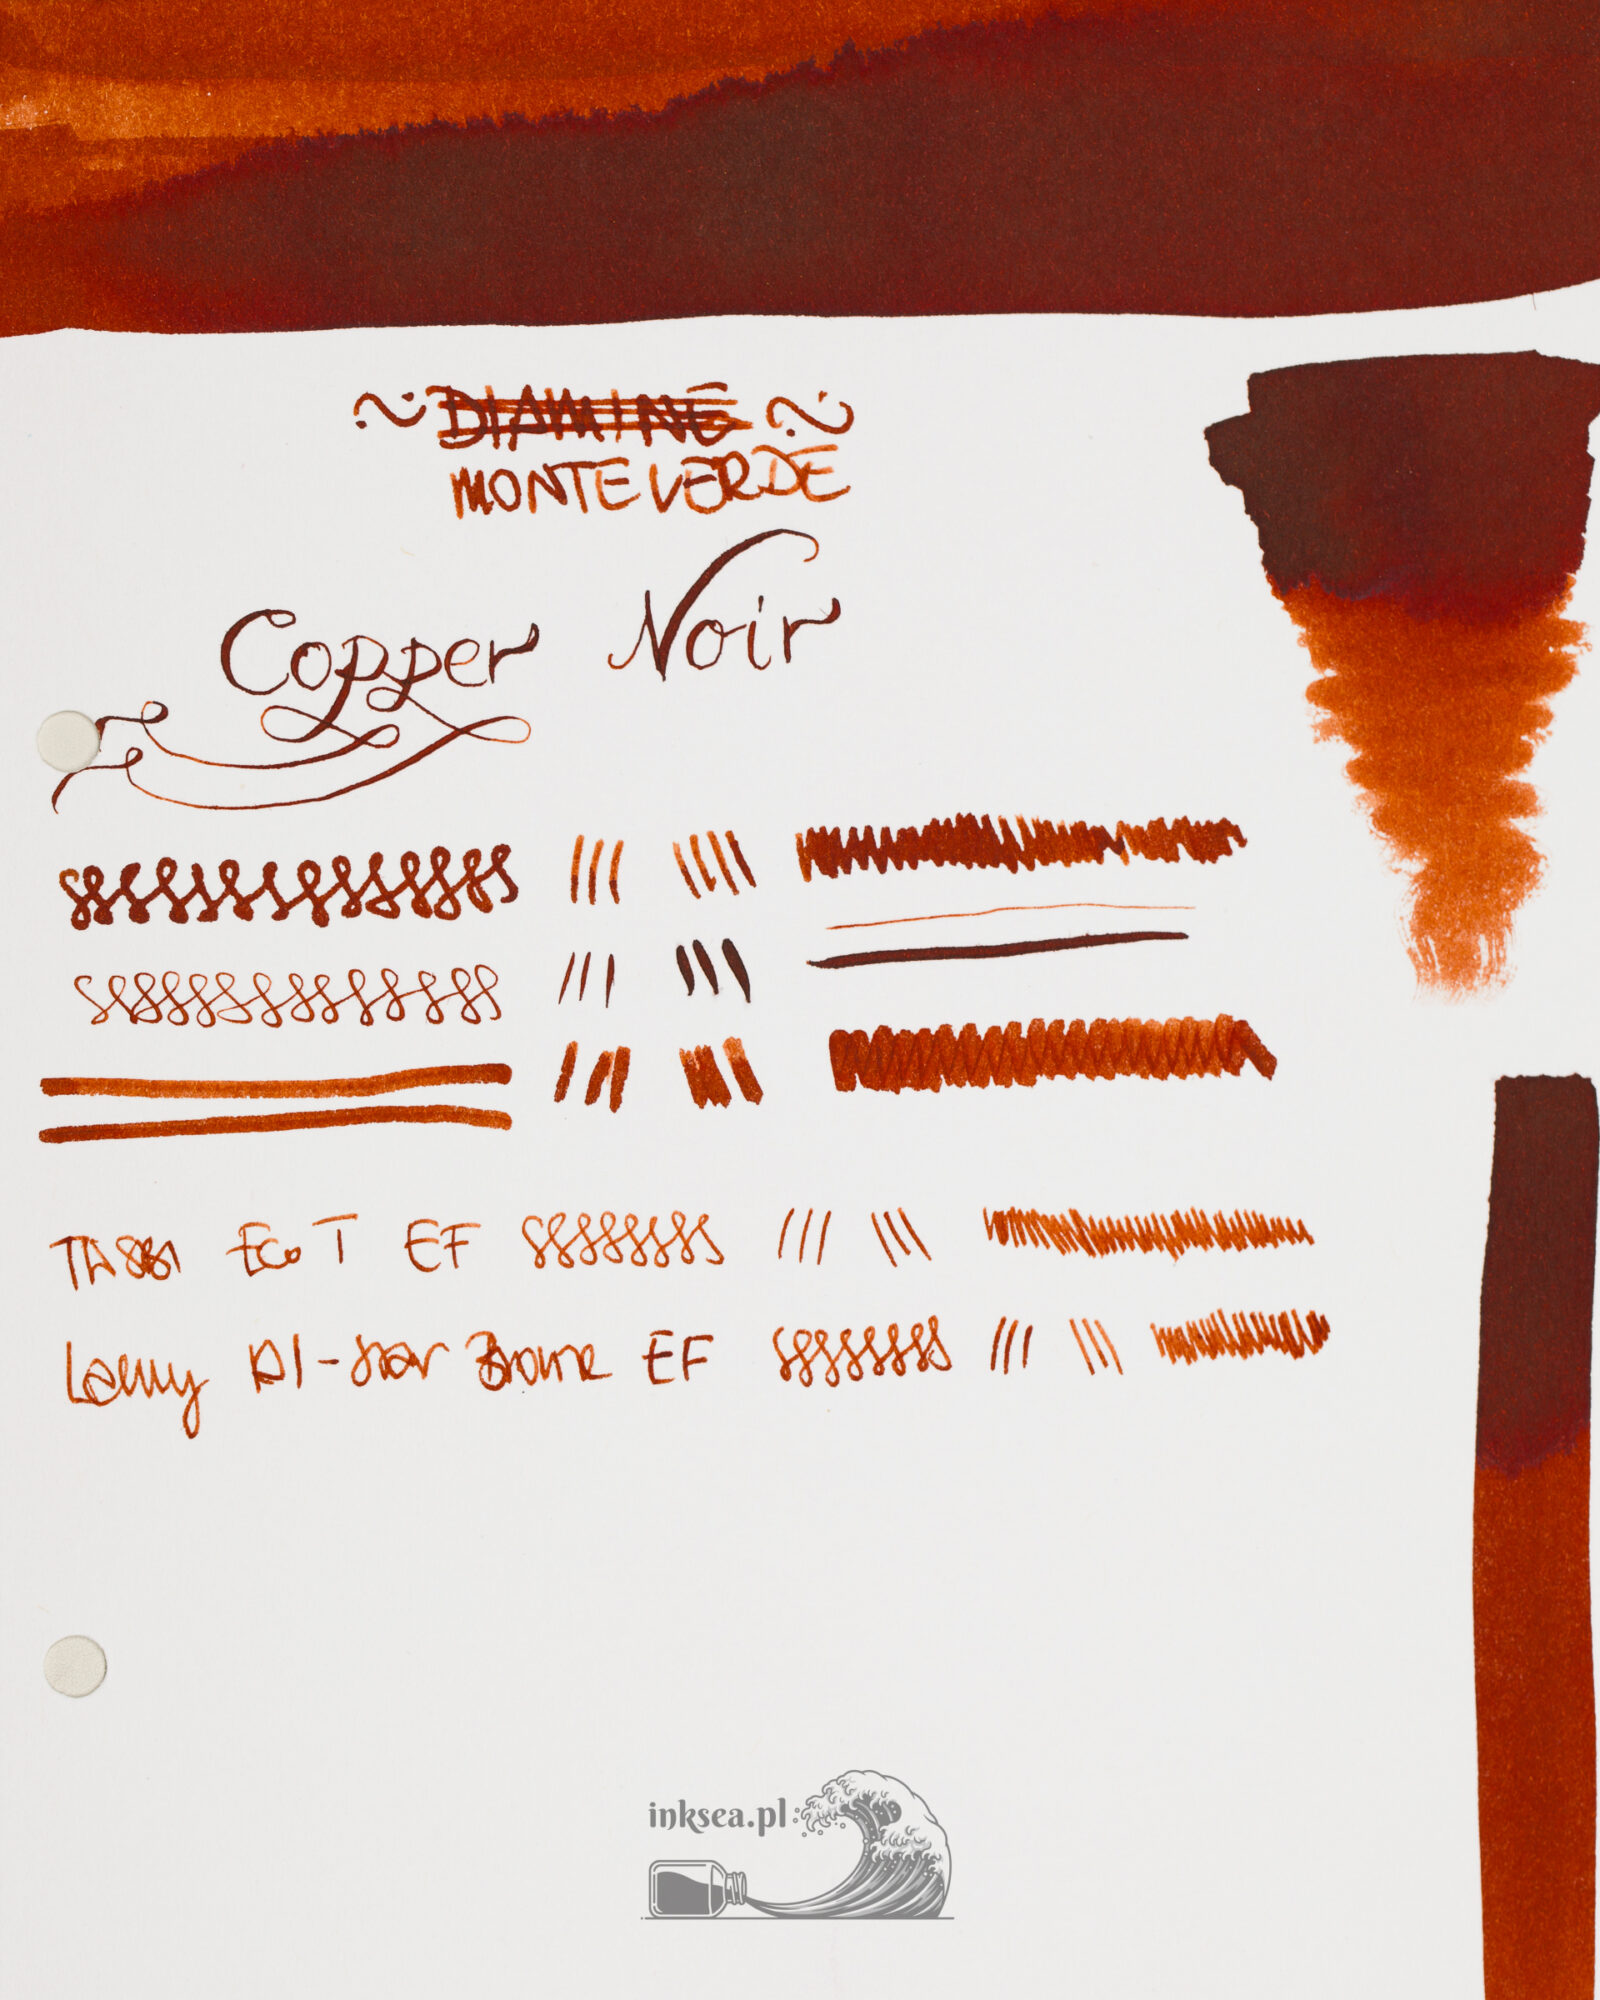 ~ DIAMINE ~
MONTEVERDE
Copper Noir
TWSBI Eco T EF
Lamy Al-star Bronze EF
inksea.pl